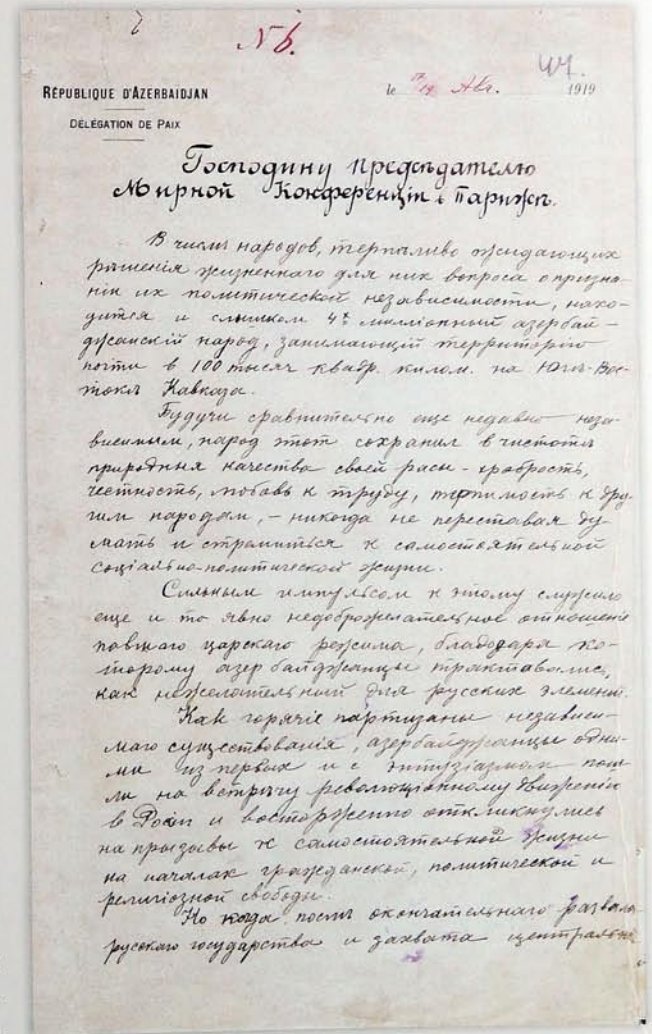 N 6.
44.
RÉPUBLIQUE D'AZERBAIDJAN
DÉLÉGATION DE PAIX
le Авг. 1919
Господину предсѣдателю
Мирной Конференціи в Парижѣ.
В числѣ народов, терпѣливо ожидающих
рѣшенія жизненнаго для них вопроса о призна-
ніи их политической независимости, нахо-
дится и слишком 4х миллионный азербай-
джанскій народ, занимающій территорію
почти в 100 тысяч квадр. килом. на Юго-Вос-
токѣ Кавказа.
Будучи сравнительно еще недавно неза-
висимым, народ этот сохранил в чистотѣ
природныя качества своей расы - храбрость,
честность, любовь к труду, терпимость к дру-
гим народам, - никогда не переставая ду-
мать и стремиться к самостоятельной
соціально-политической жизни.
Сильным импульсом к этому служило
еще и то явно недоброжелательное отношеніе
павшаго царскаго режима, благодаря ко-
торому азербайджанцы трактовались,
как нежелательный для русских элемент.
Как горячіе партизаны независи-
маго существованія, азербайджанцы одни-
ми из первых и с энтузіазмом пош-
ли на встрѣчу революціонному движенію
в Росіи и восторженно откликнулись
на призывы к самостоятельной жизни
на началах гражданской, политической и
религіозной свободы.
Но когда послѣ окончательнаго развала
русскаго государства и захвата центральн